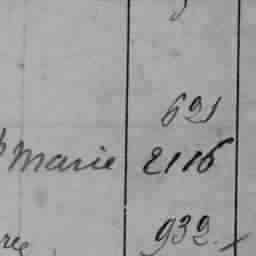 621
Marie 2116
932